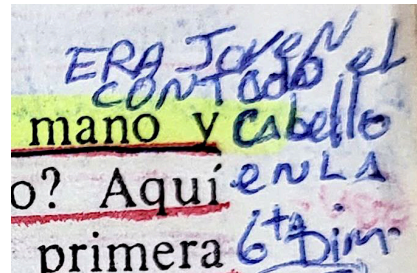 ERA Joven el
CONTADO
mano y Cabello
o? Aquí en LA
primera 6ta Dim.